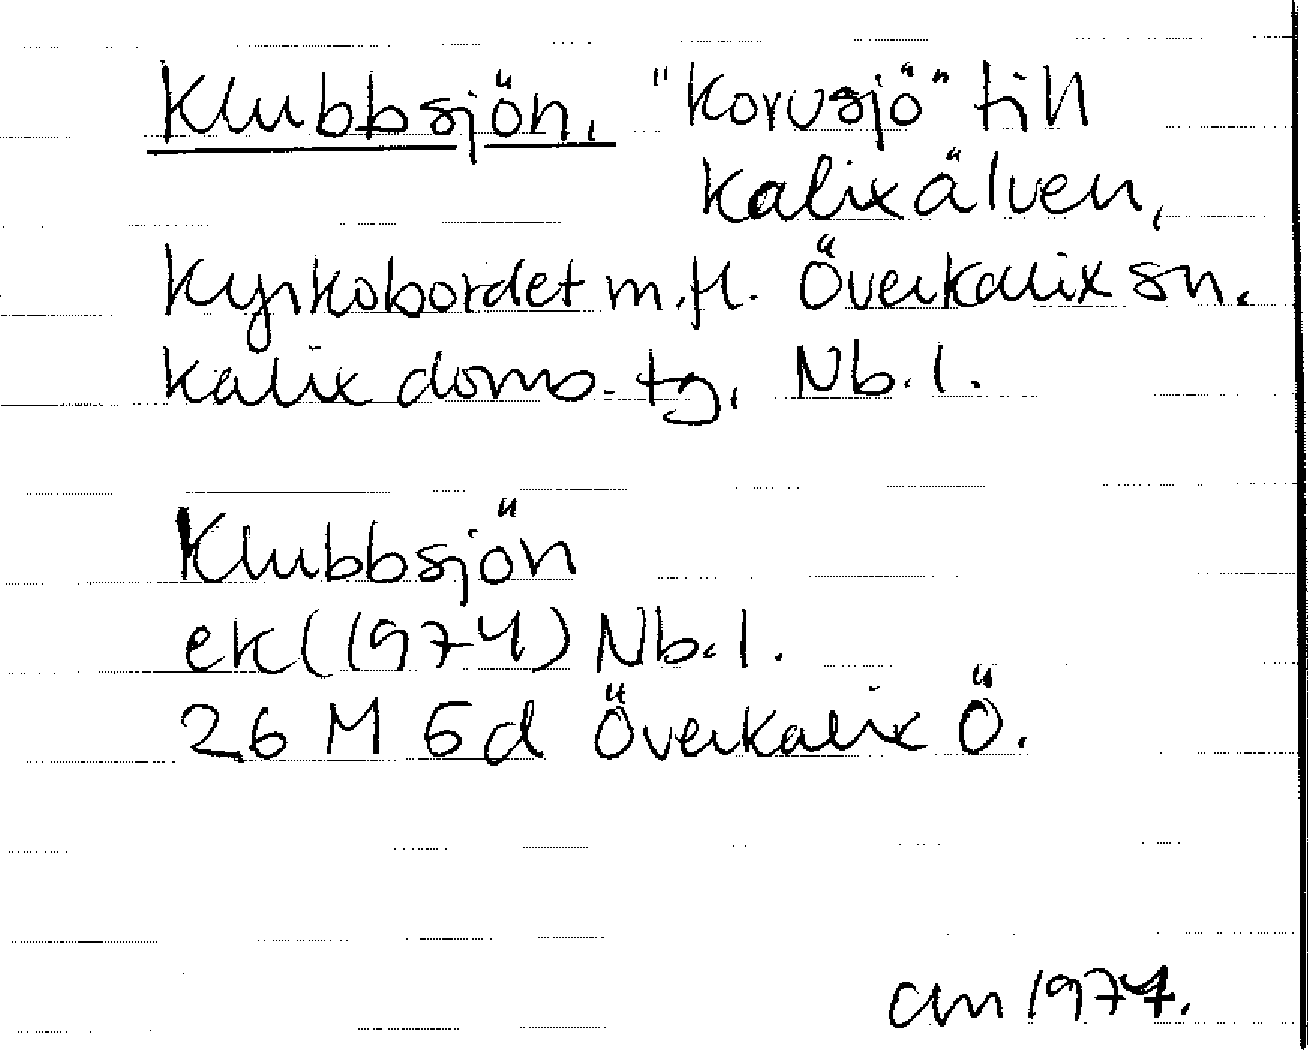 Klubbsjön. "Korvsjö" till
Kalixälven,
Kyrkobordet m.fl. Överkalix sn.
Kalix doms.tg. Nb.l.
Klubbsjön
ek (1974) Nb.l.
26 M 6d Överkalix Ö.
am 1974.